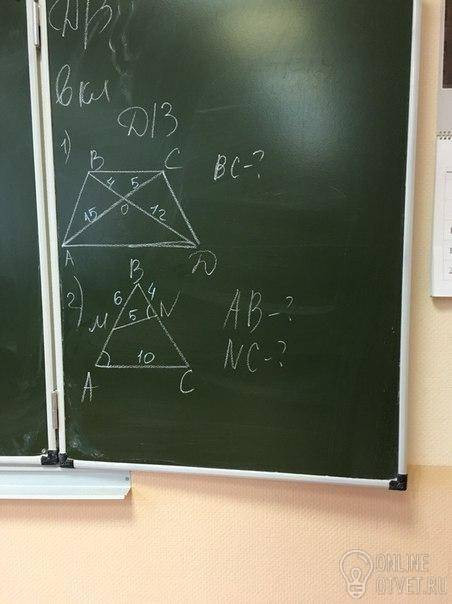 вкл
Д/З
1)
B C BC-?
4 5
15 O 12
A D
2)
B
6 4
M 5 N AB-?
10 NC-?
A C
ONLINE
OTVET.RU